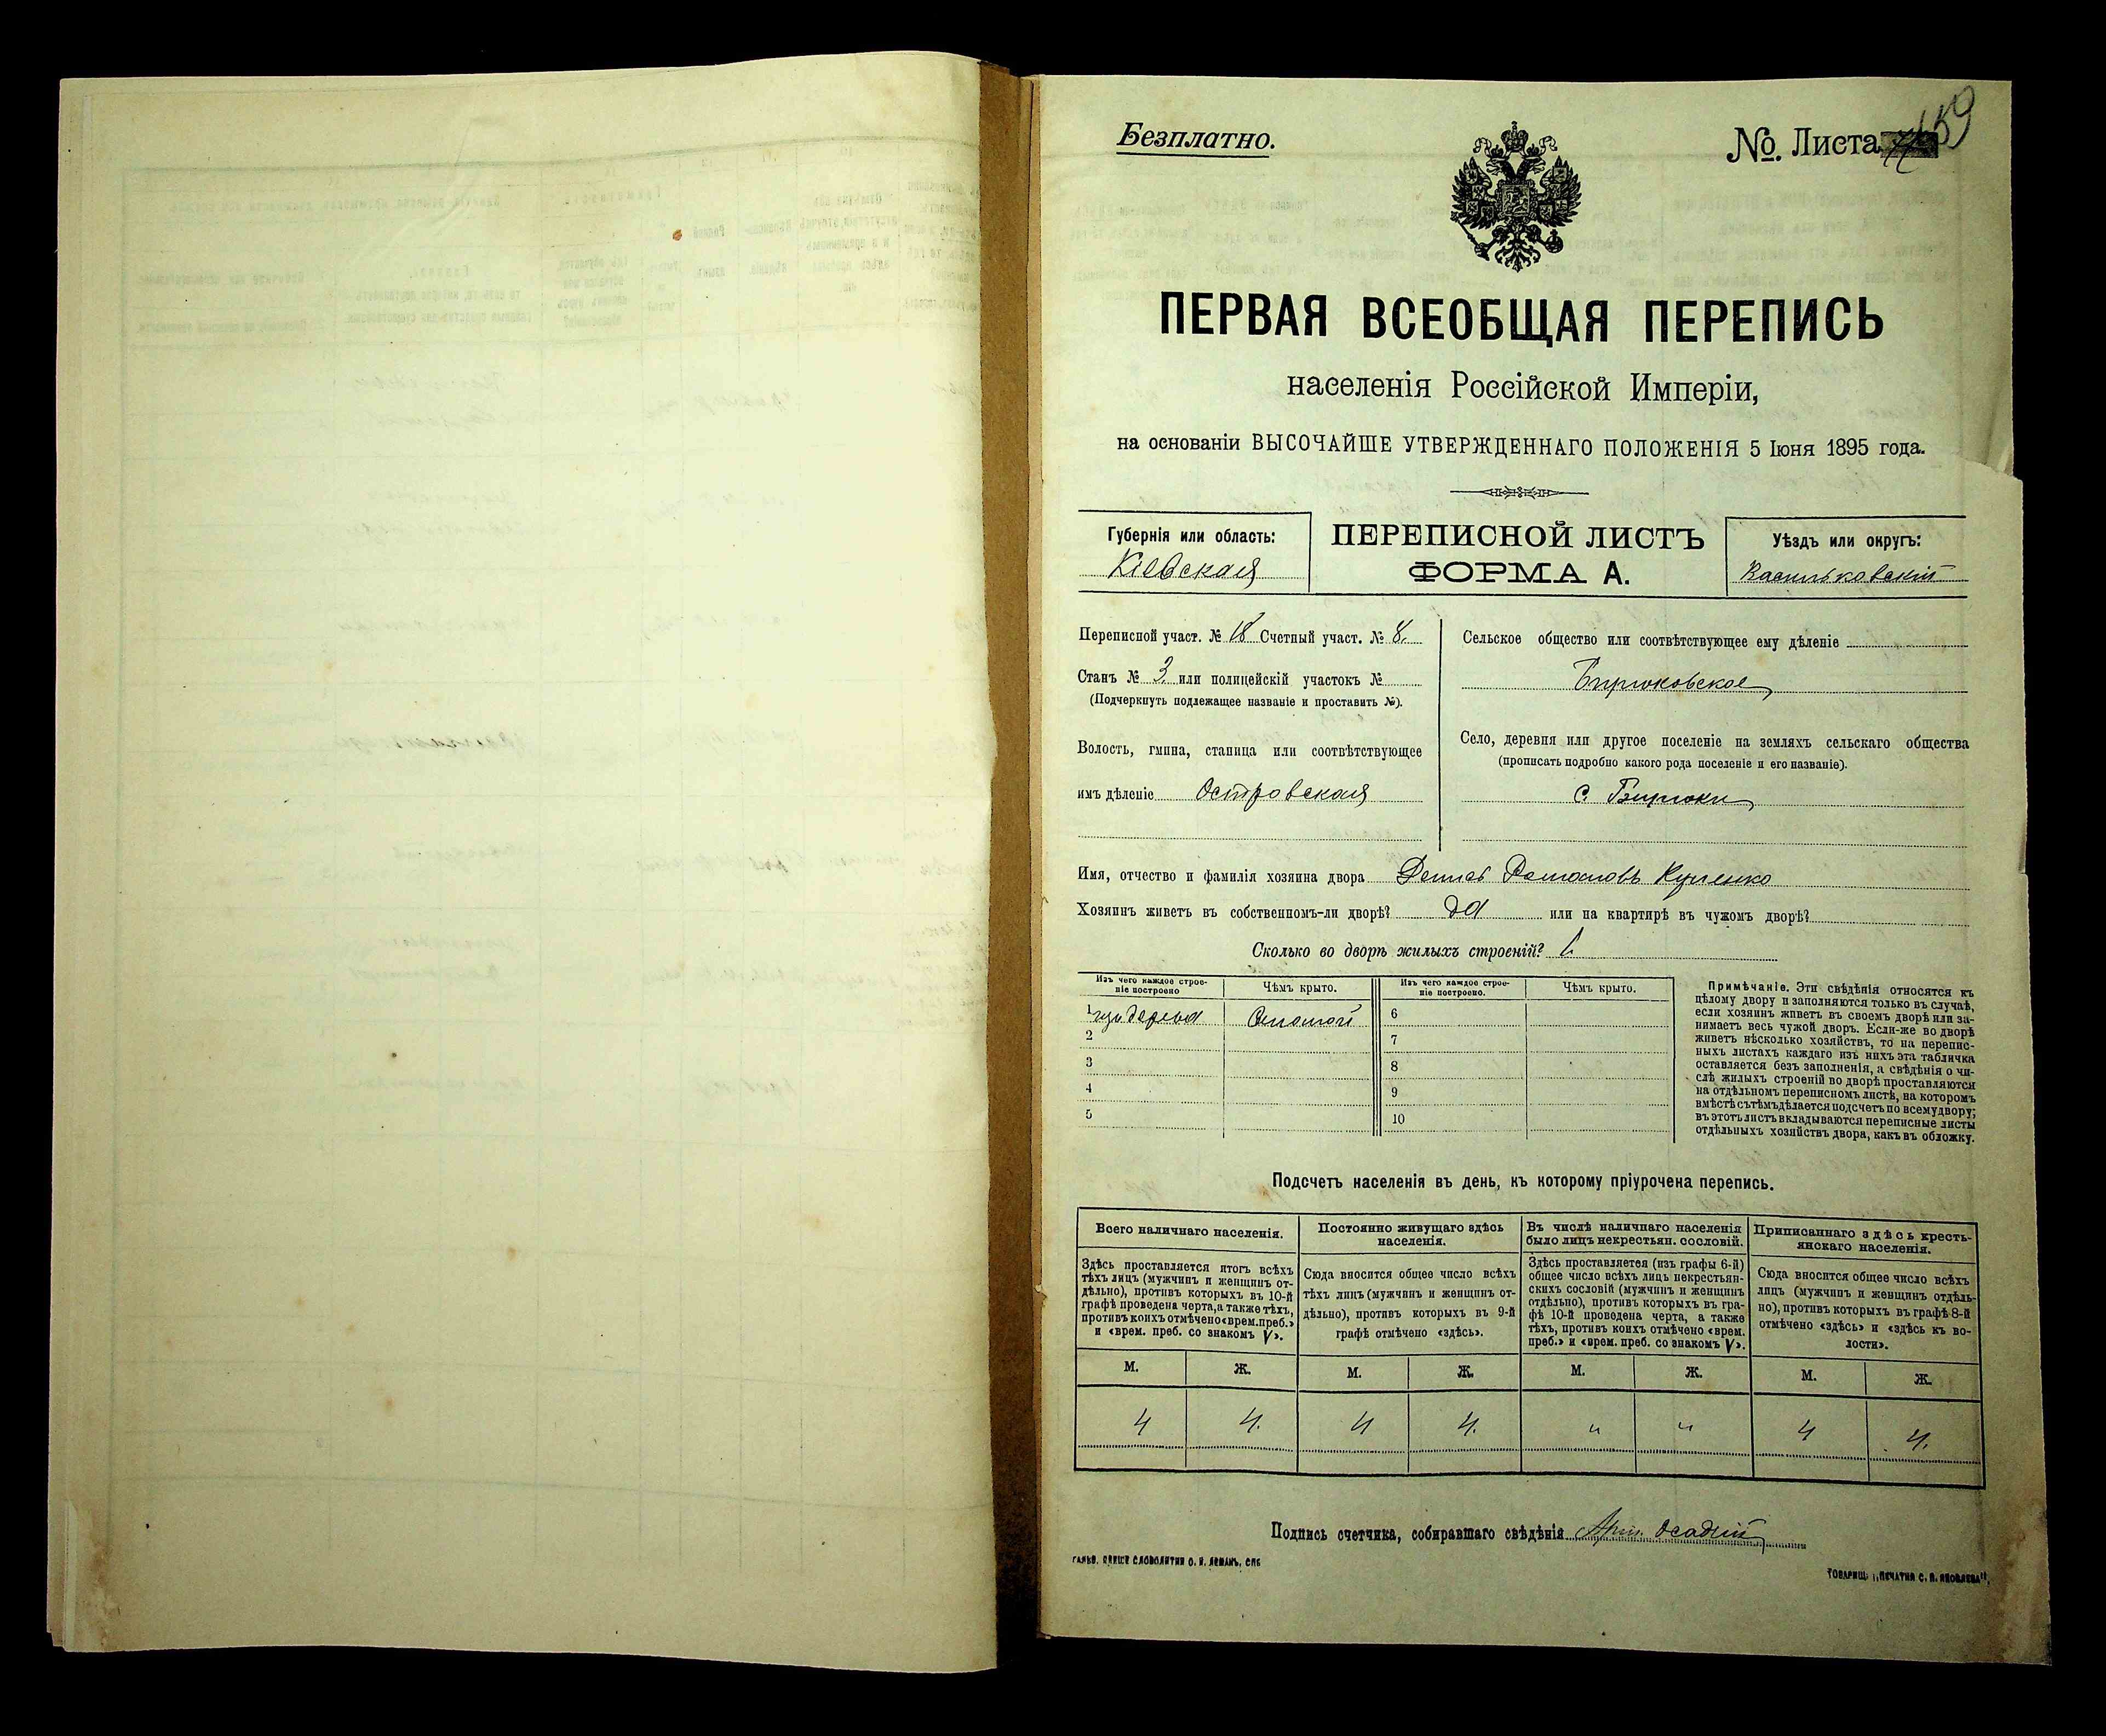 Безплатно.
№. Листа 159
ПЕРВАЯ ВСЕОБЩАЯ ПЕРЕПИСЬ
населенія Россійской Имперіи,
на основаніи ВЫСОЧАЙШЕ УТВЕРЖДЕННАГО ПОЛОЖЕНІЯ 5 Іюня 1895 года.
Губернія или область:
Кіевская
ПЕРЕПИСНОЙ ЛИСТЪ
ФОРМА А.
Уѣздъ или округъ:
Васильковскій
Переписной участ. № 18 Счетный участ. № 8.
Станъ № 3 или полицейскій участокъ №
(Подчеркнуть подлежащее названіе и проставить №).
Волость, гмина, станица или соотвѣтствующее
имъ дѣленіе Островская
Сельское общество или соотвѣтствующее ему дѣленіе
Бирюковское
Село, деревня или другое поселеніе на земляхъ сельскаго общества
(прописать подробно какого рода поселеніе и его названіе).
с. Бирюки
Имя, отчество и фамилія хозяина двора
Хозяинъ живетъ въ собственномъ-ли дворѣ? да или на квартирѣ въ чужомъ дворѣ?
Сколько во дворѣ жилыхъ строеній? 1.
Изъ чего каждое строе-
ніе построено
Чѣмъ крыто.
Изъ чего каждое строе-
ніе построено.
Чѣмъ крыто.
1 изъ дерева Соломой 6
2 7
3 8
4 9
5 10
Примѣчаніе. Эти свѣдѣнія относятся къ
цѣлому двору и заполняются только въ случаѣ,
если хозяинъ живетъ въ своемъ дворѣ или за-
нимаетъ весь чужой дворъ. Если-же во дворѣ
живетъ нѣсколько хозяйствъ, то на перепис-
ныхъ листахъ каждаго изъ нихъ эта табличка
оставляется безъ заполненія, а свѣдѣнія о чи-
слѣ жилыхъ строеній во дворѣ проставляются
на отдѣльномъ переписномъ листѣ, на которомъ
вмѣстѣ съ тѣмъ дѣлается подсчетъ по всему двору;
въ этотъ листъ вкладываются переписные листы
отдѣльныхъ хозяйствъ двора, какъ въ обложку.
Подсчетъ населенія въ день, къ которому пріурочена перепись.
Всего наличнаго населенія.
Здѣсь проставляется итогъ всѣхъ
тѣхъ лицъ (мужчинъ и женщинъ от-
дѣльно), противъ которыхъ въ 10-й
графѣ проведена черта, а также тѣхъ,
противъ коихъ отмѣчено «врем. преб.»
и «врем. преб. со знакомъ V».
Постоянно живущаго здѣсь
населенія.
Сюда вносится общее число всѣхъ
тѣхъ лицъ (мужчинъ и женщинъ от-
дѣльно), противъ которыхъ въ 9-й
графѣ отмѣчено «здѣсь».
Въ числѣ наличнаго населенія
было лицъ некрестьян. сословій.
Здѣсь проставляется (изъ графы 6-й)
общее число всѣхъ лицъ некрестьян-
скихъ сословій (мужчинъ и женщинъ
отдѣльно), противъ которыхъ въ гра-
фѣ 10-й проведена черта, а также
тѣхъ, противъ коихъ отмѣчено «врем.
преб.» и «врем. преб. со знакомъ V».
Приписаннаго здѣсь кресть-
янскаго населенія.
Сюда вносится общее число всѣхъ
лицъ (мужчинъ и женщинъ отдѣль-
но), противъ которыхъ въ графѣ 8-й
отмѣчено «здѣсь» и «здѣсь къ во-
лости».
М. Ж. М. Ж. М. Ж. М. Ж.
4 4. 4 4. " " 4 4.
Подпись счетчика, собиравшаго свѣдѣнія Осадчій
ГАЛЬВ. КЛИШЕ СЛОВОЛИТНИ О. И. ЛЕМАНЪ, СПБ
ТОВАРИЩ. „ПЕЧАТНЯ С. П. ЯКОВЛЕВА“.